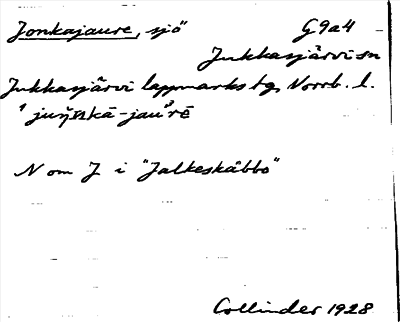 Jonkajaure, sjö G9a4
Jukkasjärvi sn
Jukkasjärvi lappmarks tg, Norrb. l.
N om J. i "Jalkeskåbbo"
Collinder 1928